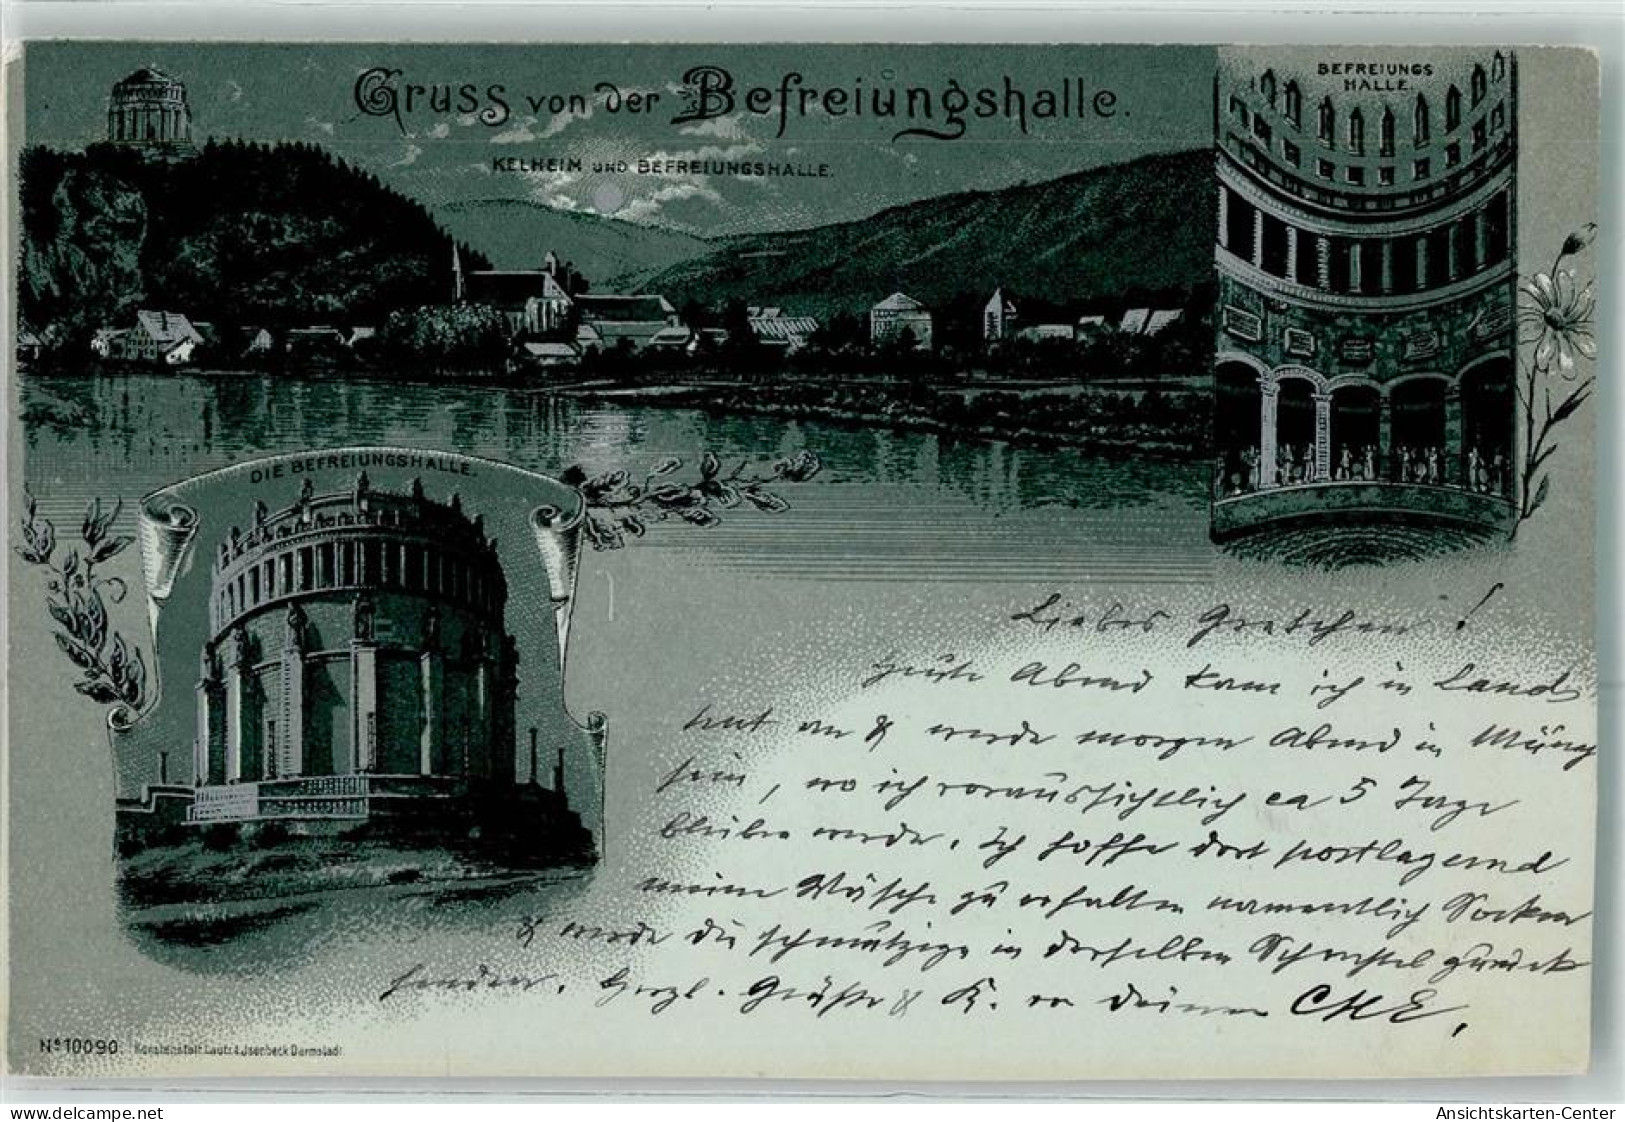 Gruss von der Befreiungshalle.
KELHEIM UND BEFREIUNGSHALLE.
BEFREIUNGS
HALLE.
DIE BEFREIUNGSHALLE.
Liebes Gretchen!
Heute Abend kam ich in Lands
hut an & werde morgen Abend in Münch
sein, wo ich voraussichtlich ca 5 Tage
bleiben werde. Ich hoffe dort postlagernd
meine Wäsche zu erhalten namentlich Socken
& werde die schmutzige in derselben Schachtel zurück
senden. Herzl. Grüße & K. von Deinem
No 10090. Kunstanstalt Lautz & Jsenbeck Darmstadt
www.delcampe.net
Ansichtskarten-Center